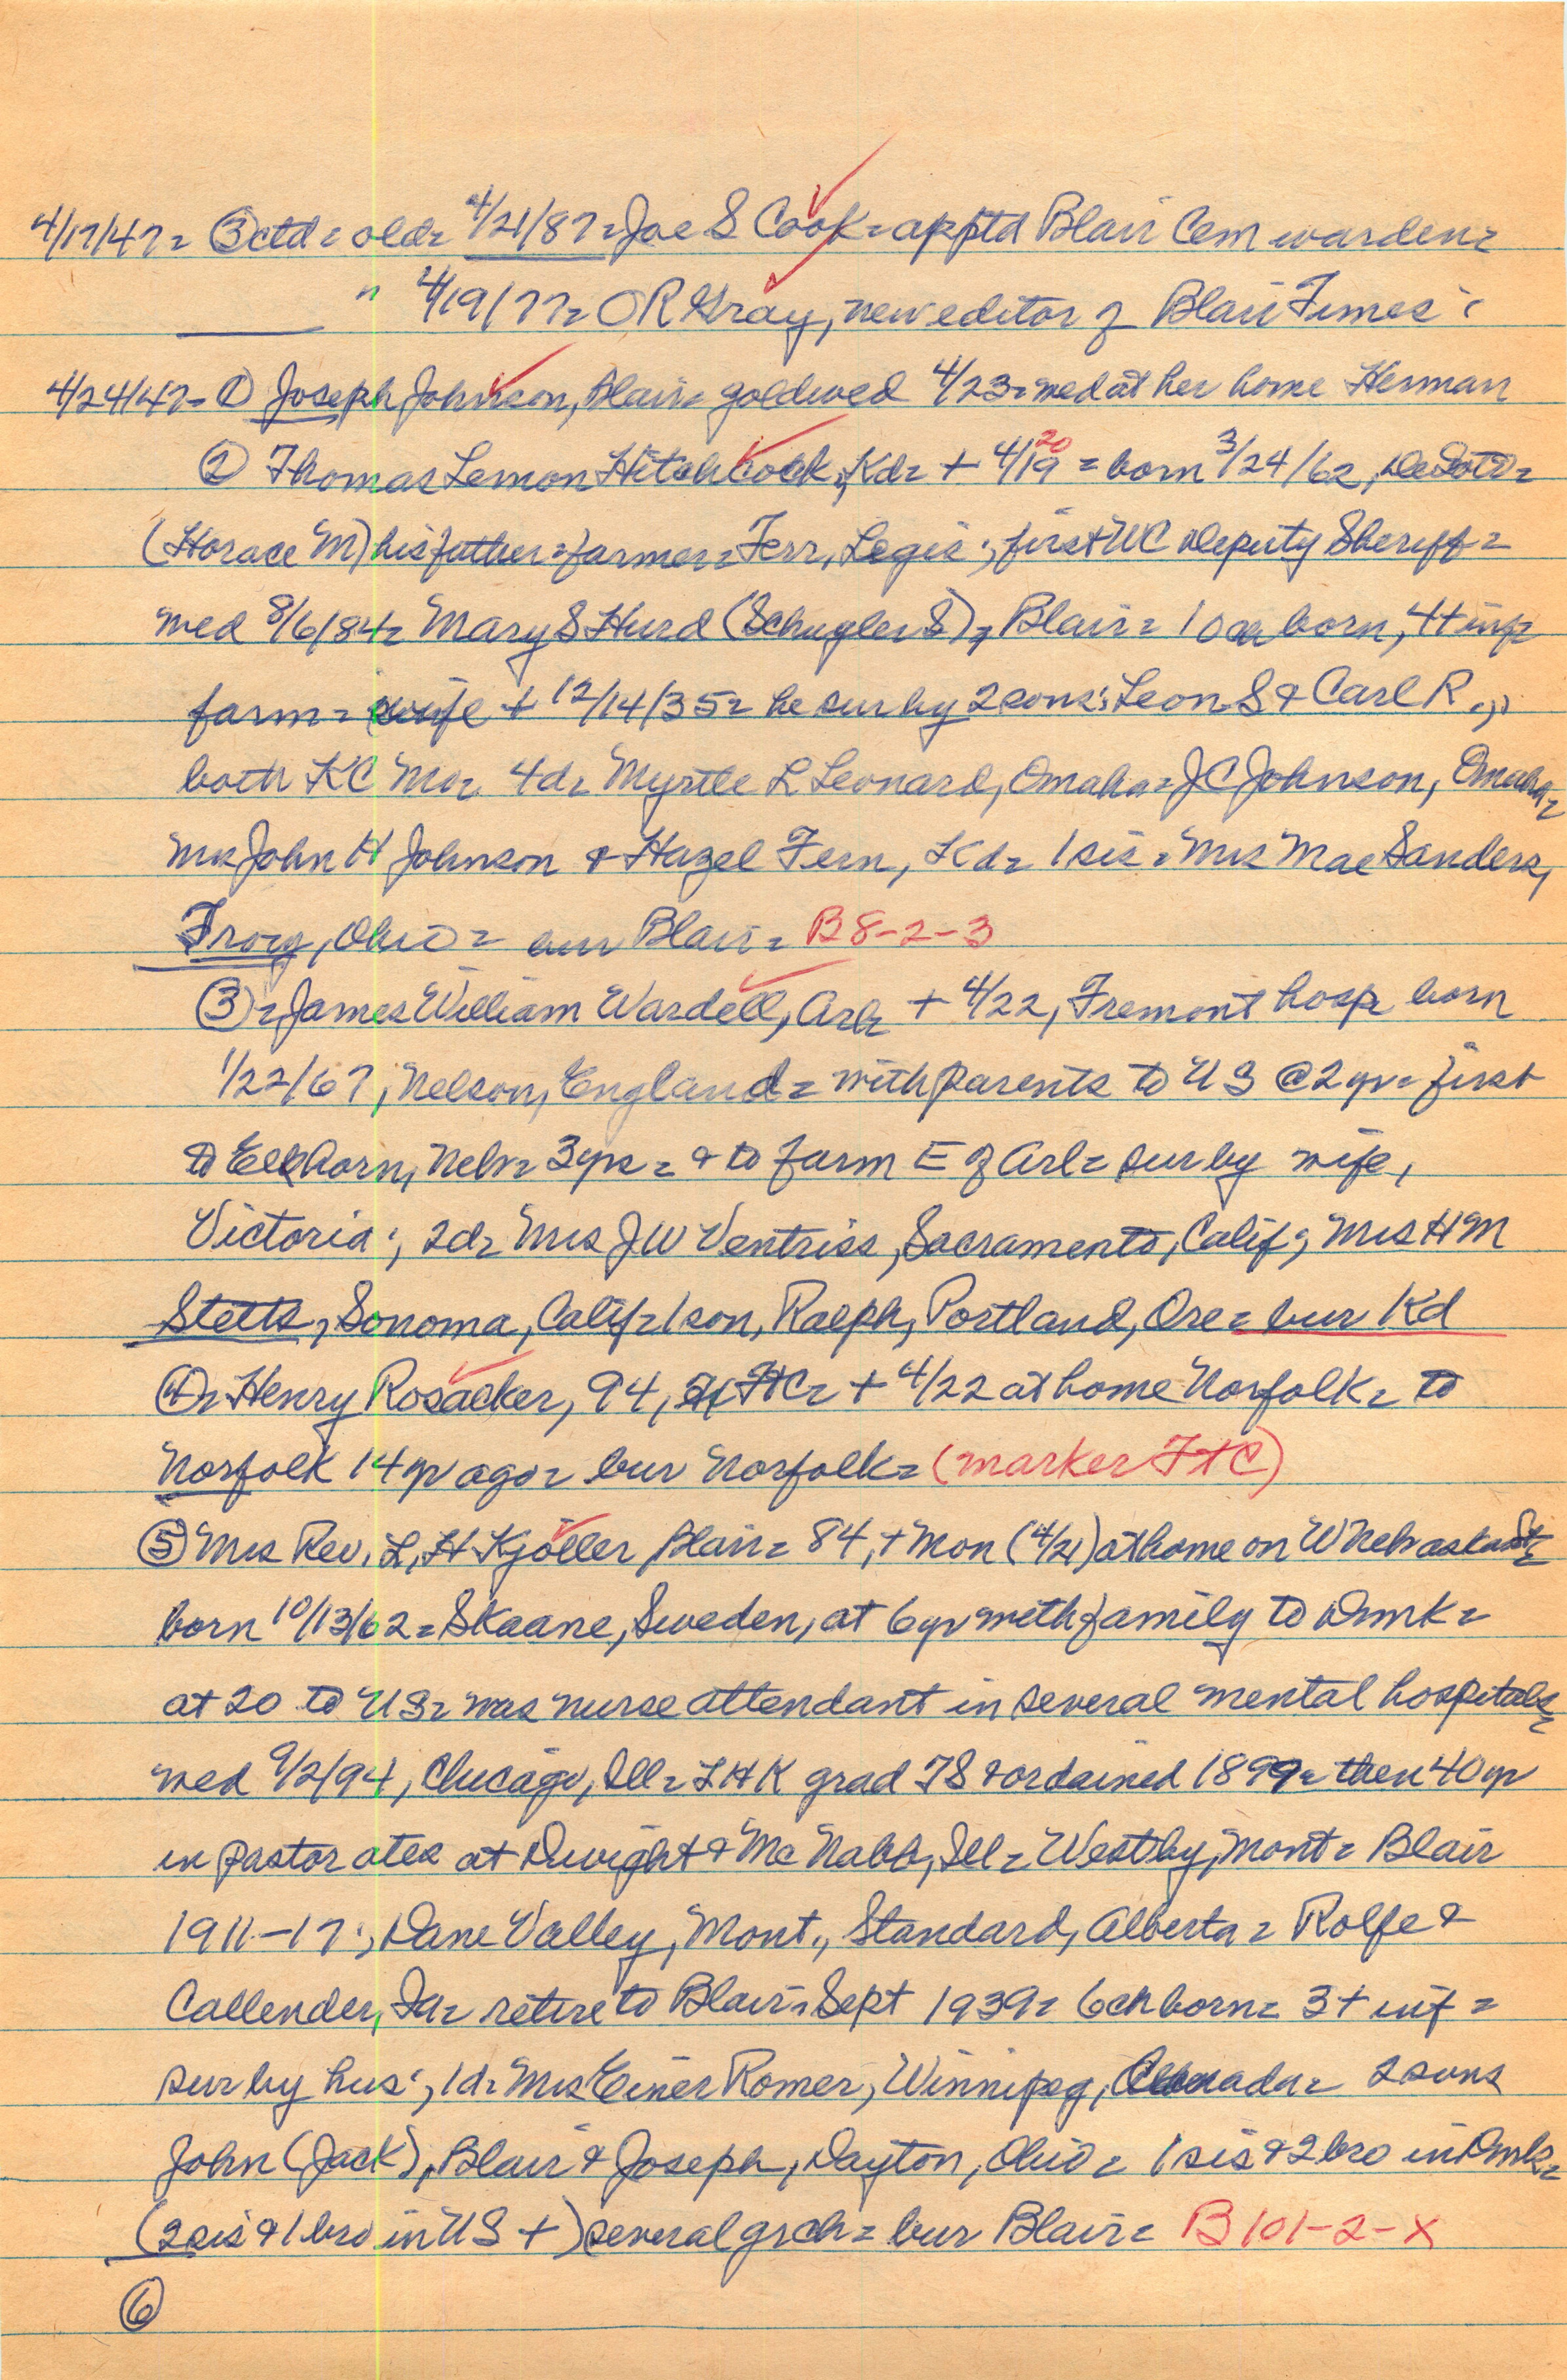 4/17/47= ③ctd= old= 4/21/87= Joe S Cook= apptd Blair Cem warden=
" 4/19/77= O R Gray, new editor of Blair Times;
4/24/47= ① Joseph Johnson, Blair= goldwed 4/23= wed at her home Herman
② Thomas Lemon Hitchcock, Kd= + 4/19 20 = born 3/24/62, DeSoto=
(Horace M) his father= farmer= Terr, Legis; first WC Deputy Sheriff=
wed 8/6/84= Mary S Hurd (Schuyler S), Blair= 10 ch born, 4+ inf=
farm= wife + 12/14/35= he sur by 2 sons; Leon S & Carl R.,
both KC Mo= 4d= Myrtle L Leonard, Omaha= J C Johnson, Omaha=
Mrs John H Johnson & Hazel Fern, Kd= 1 sis= Mrs Mae Sanders,
Troy, Ohio= bur Blair= B 8-2-3
③= James William Wardell, Arl= + 4/22, Fremont hosp= born
1/22/67, Nelson, England= with parents to US @ 2 yr= first
to Elkhorn, Neb= 3 yrs= & to farm E of Arl= sur by wife,
Victoria; 2d= Mrs J W Ventriss, Sacramento, Calif; Mrs H M
Stetts, Sonoma, Calif= 1 son, Ralph, Portland, Ore= bur Kd
④= Henry Rosacker, 94, FtC= + 4/22 at home Norfolk= to
Norfolk 14 yr ago= bur Norfolk= (marker FtC)
⑤ Mrs Rev. L, H Kjöller Blair= 84, + Mon (4/21) at home on W Nebraska St=
born 10/13/62= Skaane, Sweden, at 6 yr with family to Dnmk=
at 20 to US= was nurse attendant in several mental hospitals=
wed 9/2/94, Chicago, Ill= L H K grad TS & ordained 1899= then 40 yr
in pastorates at Dwight & McNabb, Ill= Westby, Mont= Blair
1911-17; Dane Valley, Mont., Standard, Alberta= Rolfe &
Callender, Ia= retire to Blair= Sept 1939= 6 ch born= 3 + inf=
sur by hus; 1d= Mrs Einer Romer, Winnipeg, Canada= 2 sons
John (Jack), Blair & Joseph, Dayton, Ohio= 1 sis & 2 bro in Dnmk=
(2 sis & 1 bro in US +) several grch= bur Blair= B 101-2-X
⑥